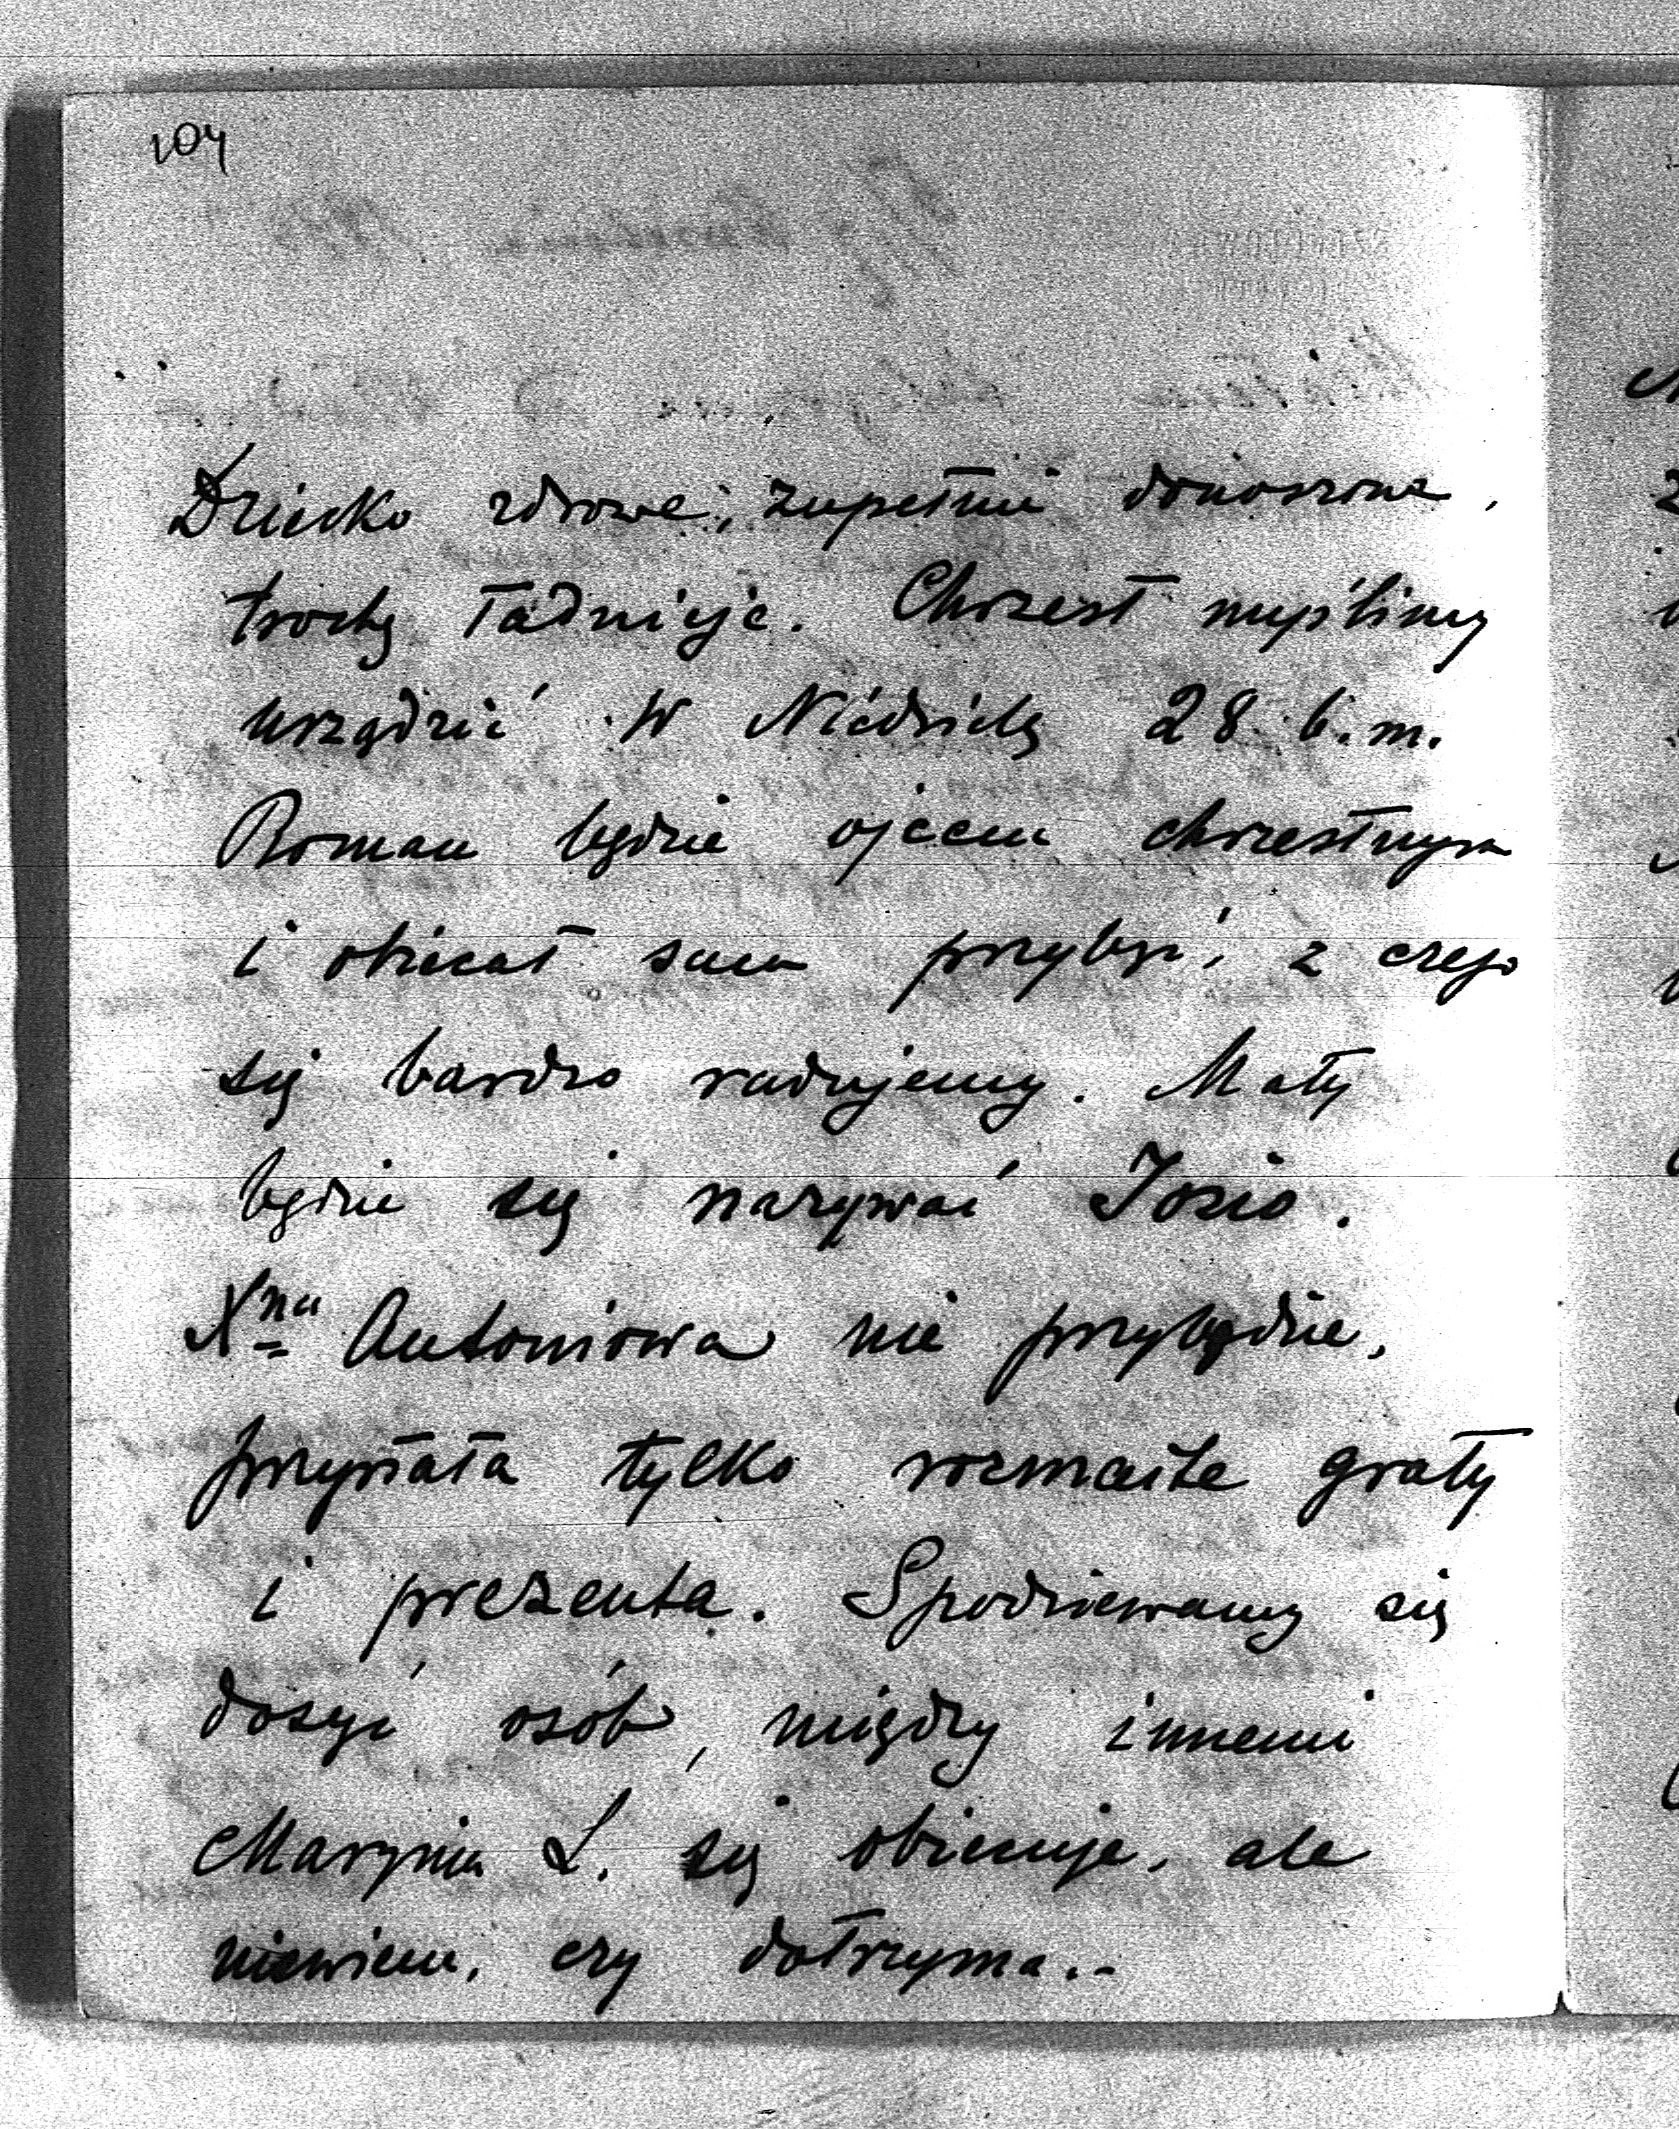 104
Dziecko zdrowe, zupełnie donoszone,
trochę ładnieje. Chrzest myślimy
urządzić w Niedzielę 28 b.m.
Roman będzie ojcem chrzestnym
i obiecał sam przybyć, z czego
się bardzo radujemy. Mały
będzie się nazywać Józio.
Xna Antoniowa nie przybędzie,
przysłała tylko rozmaite graty
i prezenta. Spodziewamy się
dosyć osób, między innemi
Marynia L. się obiecuje, ale
niewiem, czy dotrzyma.-